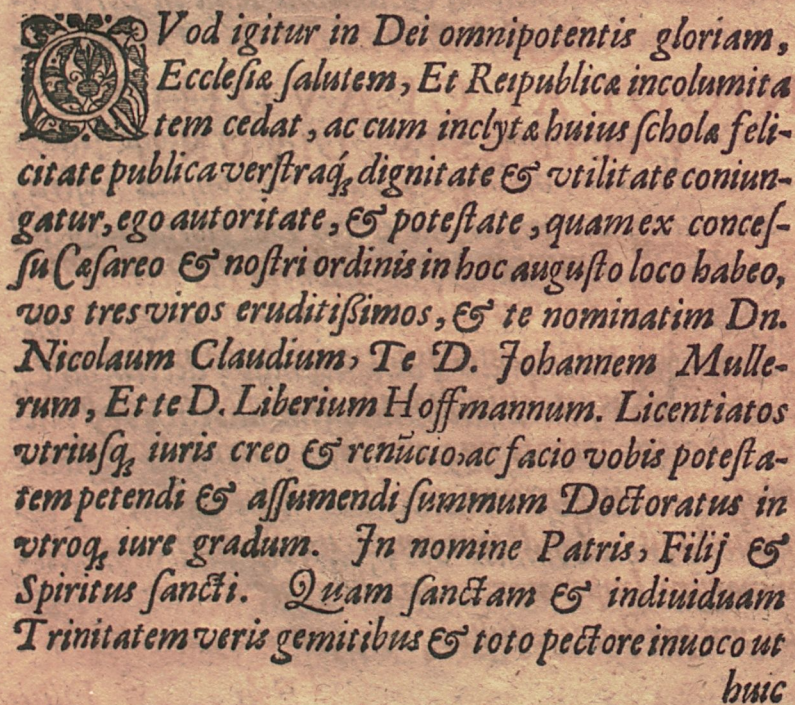 QVod igitur in Dei omnipotentis gloriam,
Ecclesiæ ſalutem, Et Reipublicæ incolumita
tem cedat, ac cum inclytæ huius ſcholæ feli-
citate publica verſtraq́ꝫ dignitate & vtilitate coniun-
gatur, ego autoritate, & poteſtate, quam ex conceſ-
ſu Cæſareo & noſtri ordinis in hoc auguſto loco habeo,
vos tres viros eruditißimos, & te nominatim Dn.
Nicolaum Claudium, Te D. Johannem Mulle-
rum, Et te D. Liberium Hoffmannum. Licentiatos
vtriuſqꝫ iuris creo & renũcio, ac facio vobis poteſta-
tem petendi & aſſumendi ſummum Doctoratus in
vtroqꝫ iure gradum. In nomine Patris, Filij &
Spiritus ſancti. Quam ſanctam & indiuiduam
Trinitatem veris gemitibus & toto pectore inuoco ut
huic